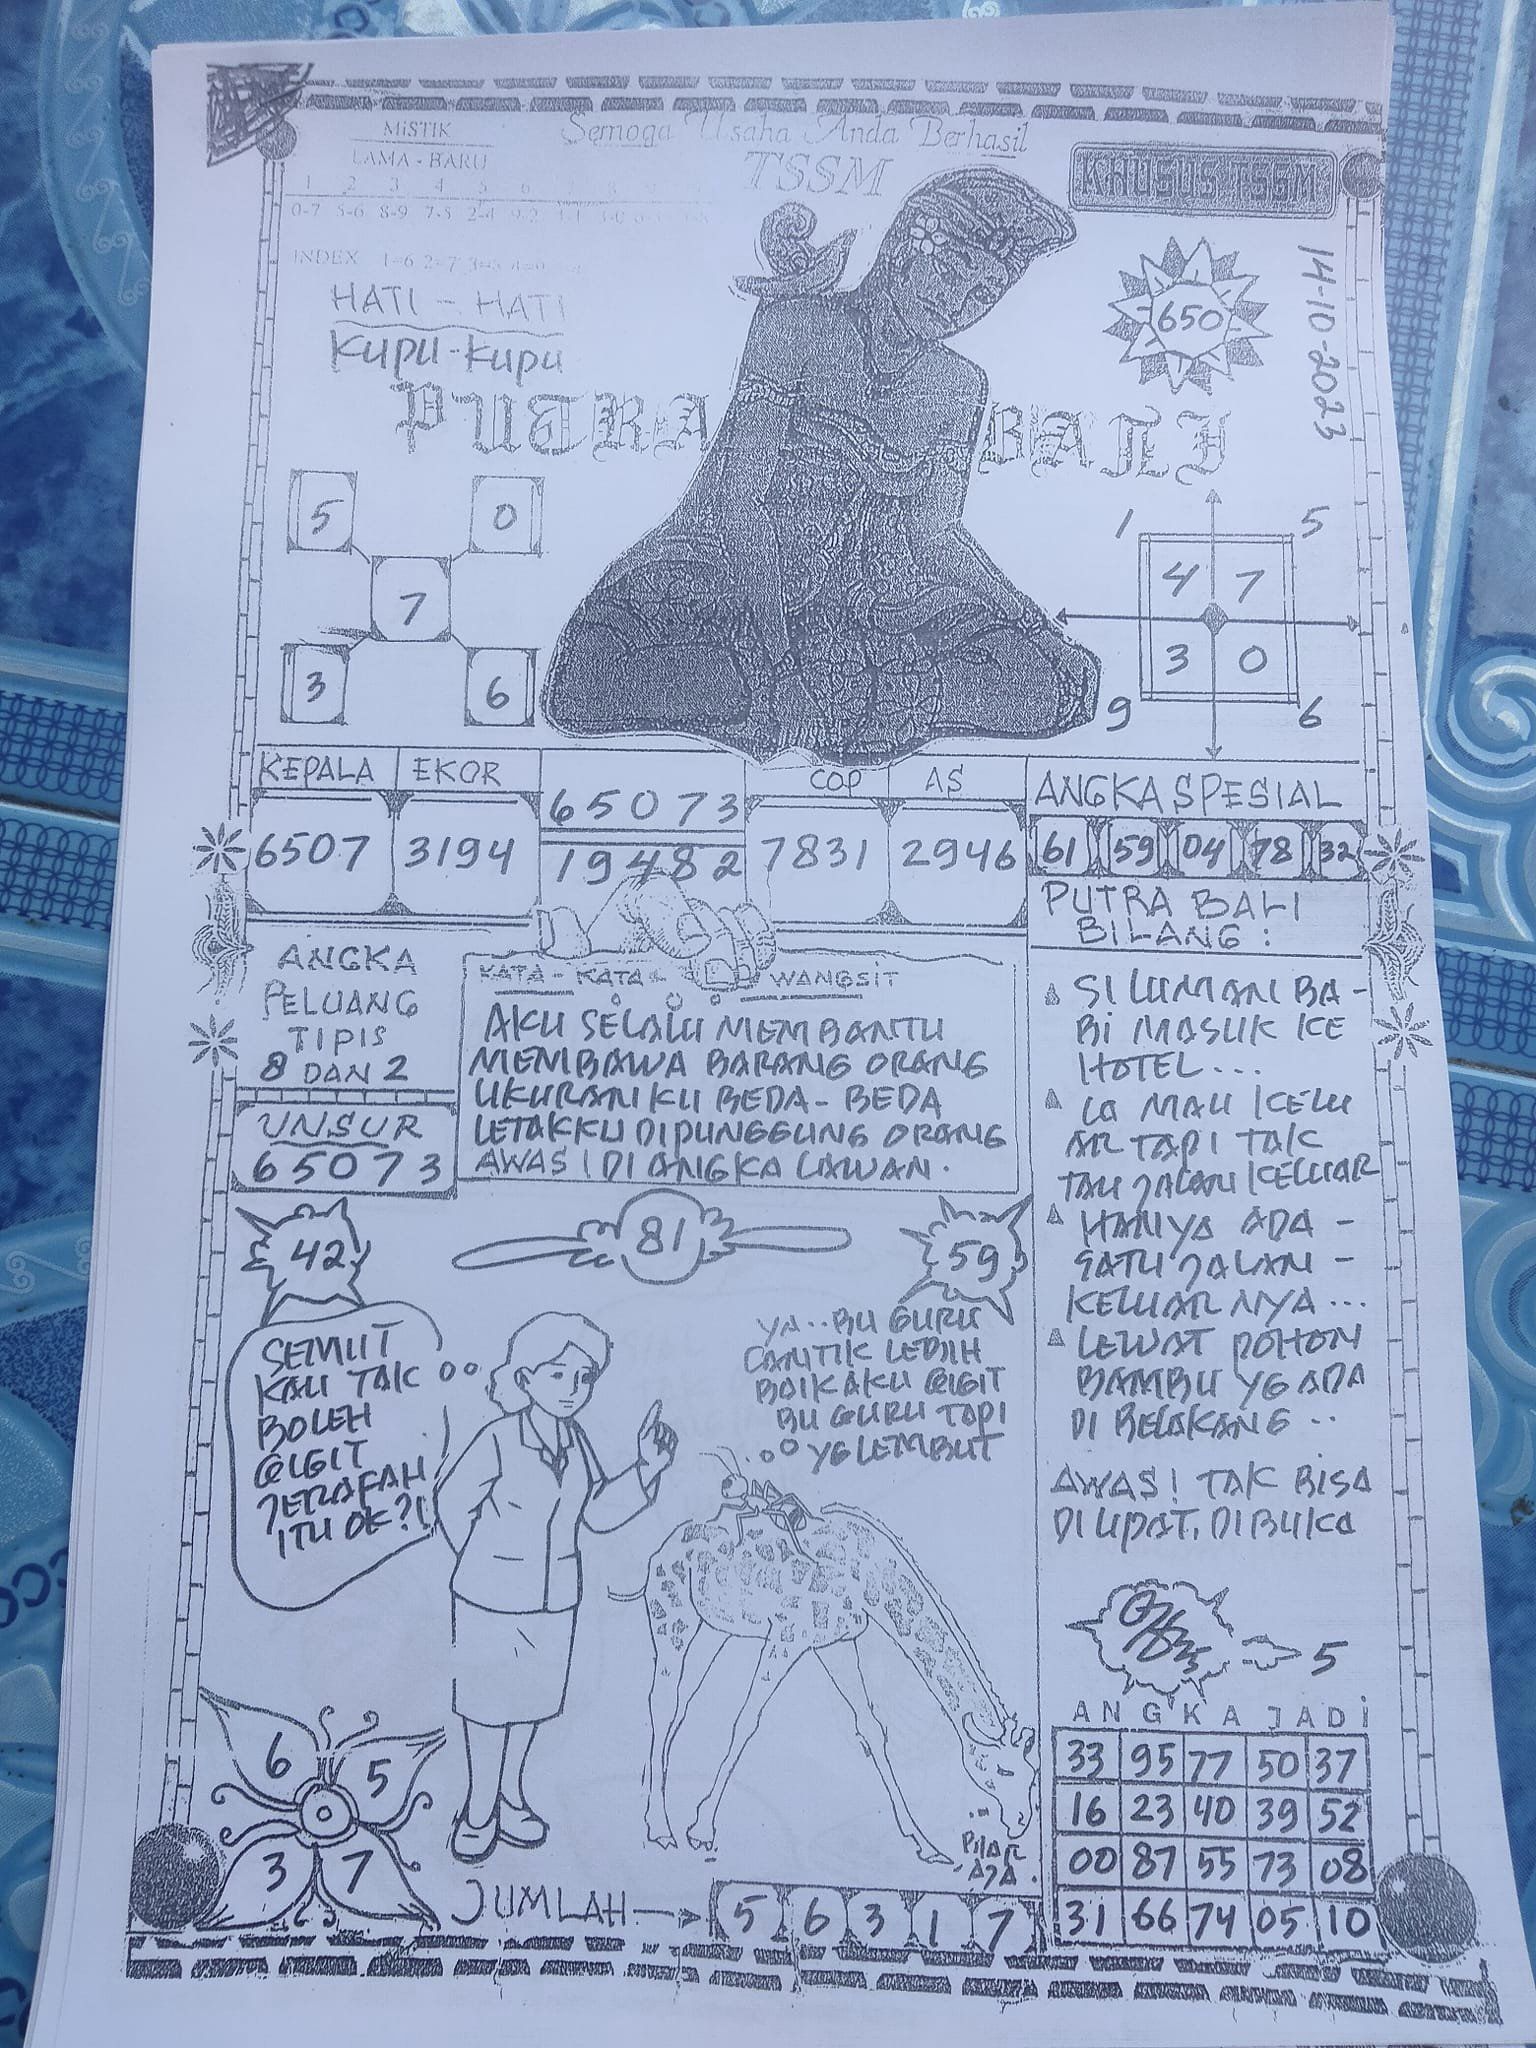 MiSTIK
LAMA - BARU
1 2 3 4 5 6
0-7 5-6 8-9 7-5 2-4 9-2 1-1
INDEX 1=6 2=7
HATI - HATI
KUPU-KUPU
Semoga Usaha Anda Berhasil
TSSM
KHUSUS TSSM
14-10-2023
650
PUTRA BALI
5 0
7
3 6
1 5
4 7
3 0
9 6
KEPALA EKOR
6507 3194
65073
19482
COP AS
7831 2946
ANGKA SPESIAL
61 59 04 78 32
PUTRA BALI
BILANG :
SILUMAN BA -
BI MASUK KE
HOTEL...
LG MAU KELU
AR TAPI TAK
TAU JALAN KELUAR
HANYA ADA -
SATU JALAN -
KELUAR NYA ...
LEWAT POHON
BAMBU YG ADA
DI BELAKANG ..
AWAS! TAK BISA
DI LIPAT, DI BUKA
ANGKA
PELUANG
TIPIS
8 DAN 2
UNSUR
65073
KATA - KATA WANGSIT
AKU SELALU MEMBANTU
MEMBAWA BARANG ORANG
UKURANKU BEDA - BEDA
LETAKKU DIPUNGGUNG ORANG
AWAS! DI ANGKA LAWAN.
42
81
59
SEMUT
KAU TAK
BOLEH
GIGIT
JERAFAH
ITU OK?!
YA.. BU GURU
CANTIK LEBIH
BAIK AKU GIGIT
BU GURU TAPI
YG LEMBUT
5
6 5
3 7
JUMLAH
5 6 3 1 7
ANGKA JADI
33 95 77 50 37
16 23 40 39 52
00 87 55 73 08
31 66 74 05 10